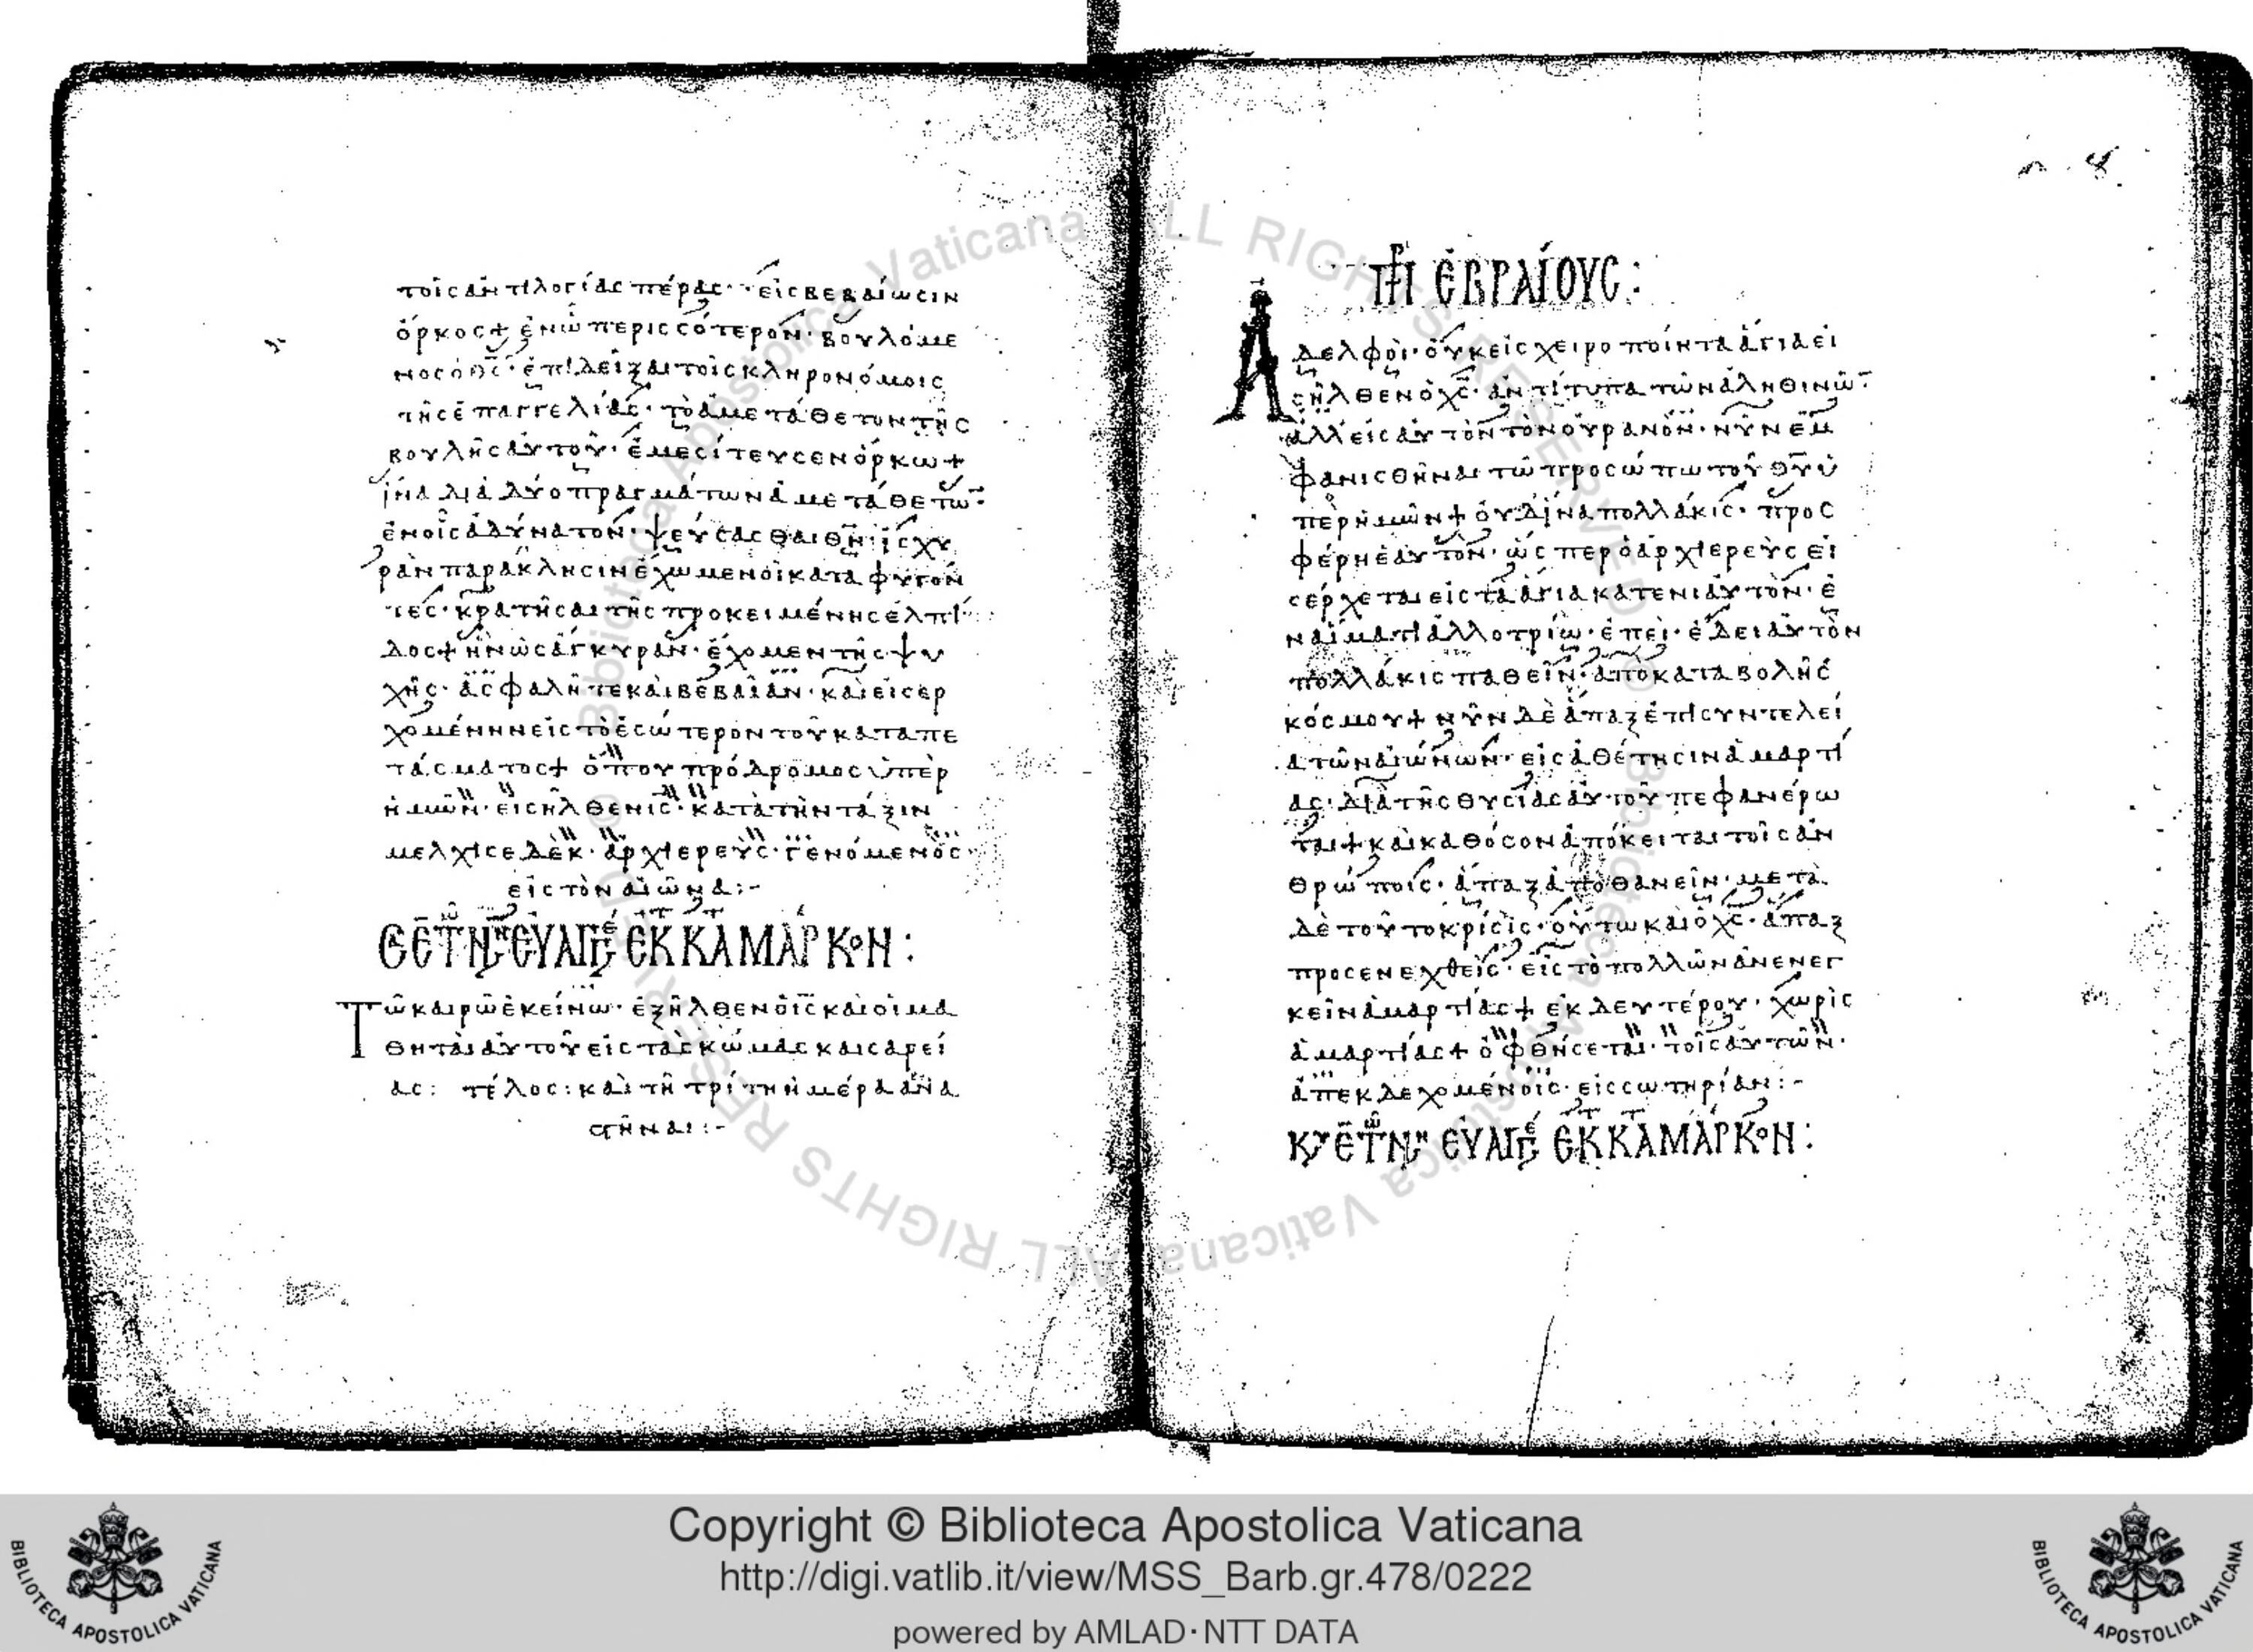 τοῖς ἀντιλογίας πέρας· εἰς βεβαίωσιν
ὅρκος + ἐν ὧ περισσότερον· βουλόμε
νος ὁ θς· ἐπιδεῖξαι τοῖς κληρονόμοις
τῆς ἐπαγγελίας· τὸ ἀμετάθετον τῆς
βουλῆς αὐτοῦ· ἐμεσίτευσεν ὅρκω +
ἵνα διὰ δύο πραγμάτων ἀμεταθέτω
ἐν οἷς ἀδύνατον· ψεύσασθαι θν· ἰσχυ
ρὰν παράκλησιν ἔχωμεν οἱ καταφυγόν
τες· κρατῆσαι τῆς προκειμένης ἐλπί
δος + ἣν ὡς ἄγκυραν· ἔχομεν τῆς ψυ
χῆς· ἀσφαλῆ τε καὶ βεβαίαν· καὶ εἰσερ
χομένην εἰς τὸ ἐσώτερον τοῦ καταπε
τάσματος + ὅπου πρόδρομος ὑπὲρ
ἡμῶν· εἰσῆλθεν ις· κατὰ τὴν τάξιν
μελχισεδὲκ· ἀρχιερεὺς· γενόμενος·
εἰς τὸν αἰῶνα:-
ΕΥΑΓΓΕ ΕΚ ΚΑ ΜΑΡΚΟΝ:
Τῶ καιρῶ ἐκείνω· ἐξῆλθεν ὁ ις καὶ οἱ μα
θηταὶ αὐτοῦ εἰς τὰς κώμας καισαρεί
ας: τέλος: καὶ τῆ τρίτη ἡμέρα ἀνα
στῆναι:-
ΠΡ ΕΒΡΑΙΟΥΣ:
Ἀδελφοὶ· οὐκ εἰς χειροποίητα ἅγια εἰ
σῆλθεν ὁ χς· ἀντίτυπα τῶν ἀληθινῶ
ἀλλ' εἰς αὐτὸν τὸν οὐρανόν· νῦν ἐμ
φανισθῆναι τῶ προσώπω τοῦ θυ ὑ
πὲρ ἡμῶν + οὐδ' ἵνα πολλάκις· προσ
φέρη ἑαυτόν· ὥσπερ ὁ ἀρχιερεὺς εἰ
σέρχεται εἰς τὰ ἅγια κατ ἐνιαυτὸν· ἐ
ν αἵματι ἀλλοτρίω· ἐπεὶ· ἔδει αὐτὸν
πολλάκις παθεῖν· ἀπὸ καταβολῆς
κόσμου + νῦν δὲ ἅπαξ ἐπὶ συντελεί
α τῶν αἰώνων· εἰς ἀθέτησιν ἁμαρτί
ας· διὰ τῆς θυσίας αὐτοῦ πεφανέρω
ται + καὶ καθόσον ἀπόκειται τοῖς ἀν
θρώποις· ἅπαξ ἀποθανεῖν· μετὰ
δὲ τοῦτο κρίσις· οὕτω καὶ ὁ χς· ἅπαξ
προσενεχθεὶς· εἰς τὸ πολλῶν ἀνενεγ
κεῖν ἁμαρτίας + ἐκ δευτέρου· χωρὶς
ἁμαρτίας + ὀφθήσεται· τοῖς αὐτὸν·
ἀπεκδεχομένοις· εἰς σωτηρίαν:-
ΕΥΑΓΓΕ ΕΚ ΚΑ ΜΑΡΚΟΝ:
Copyright © Biblioteca Apostolica Vaticana
http://digi.vatlib.it/view/MSS_Barb.gr.478/0222
powered by AMLAD·NTT DATA
BIBLIOTECA APOSTOLICA VATICANA
BIBLIOTECA APOSTOLICA VATICANA